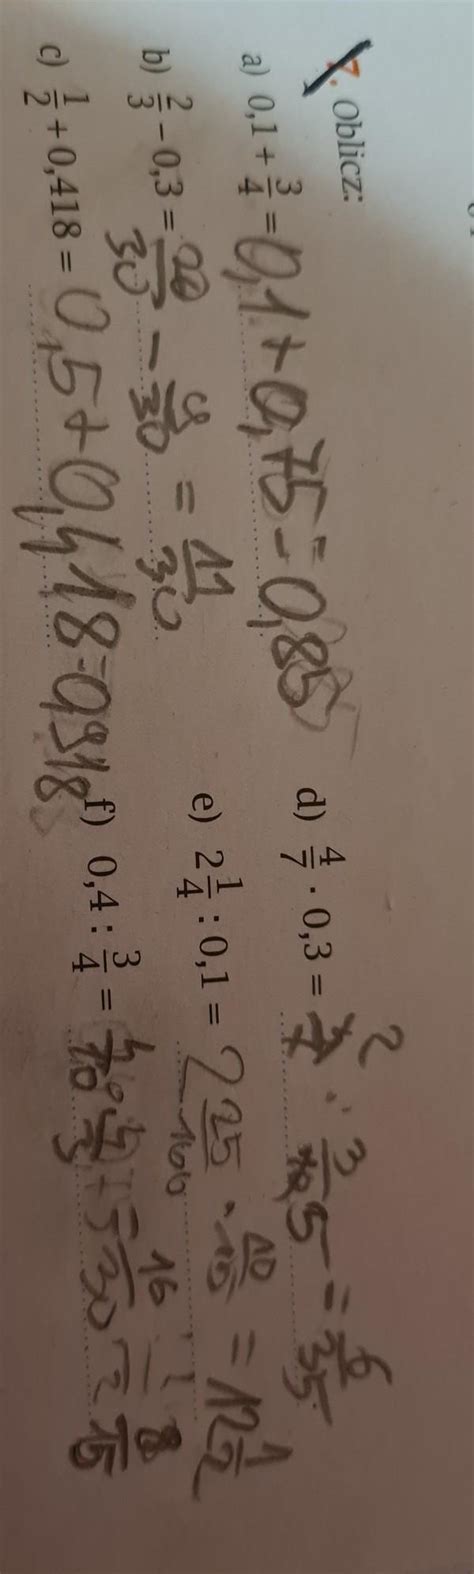 7. Oblicz:
a) 0,1 + 3/4 = 0,1 + 0,75 = 0,85
b) 2/3 - 0,3 = 20/30 - 9/30 = 11/30
c) 1/2 + 0,418 = 0,5 + 0,418 = 0,918
d) 4/7 · 0,3 = 2 4/7 · 3/10 5 = 6/35
e) 2 1/4 : 0,1 = 2 25/100 · 10 = 12 1/2
f) 0,4 : 3/4 = 4/10 · 4/3 = 16/30 = 8/15